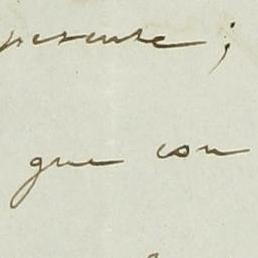 presente;
que con